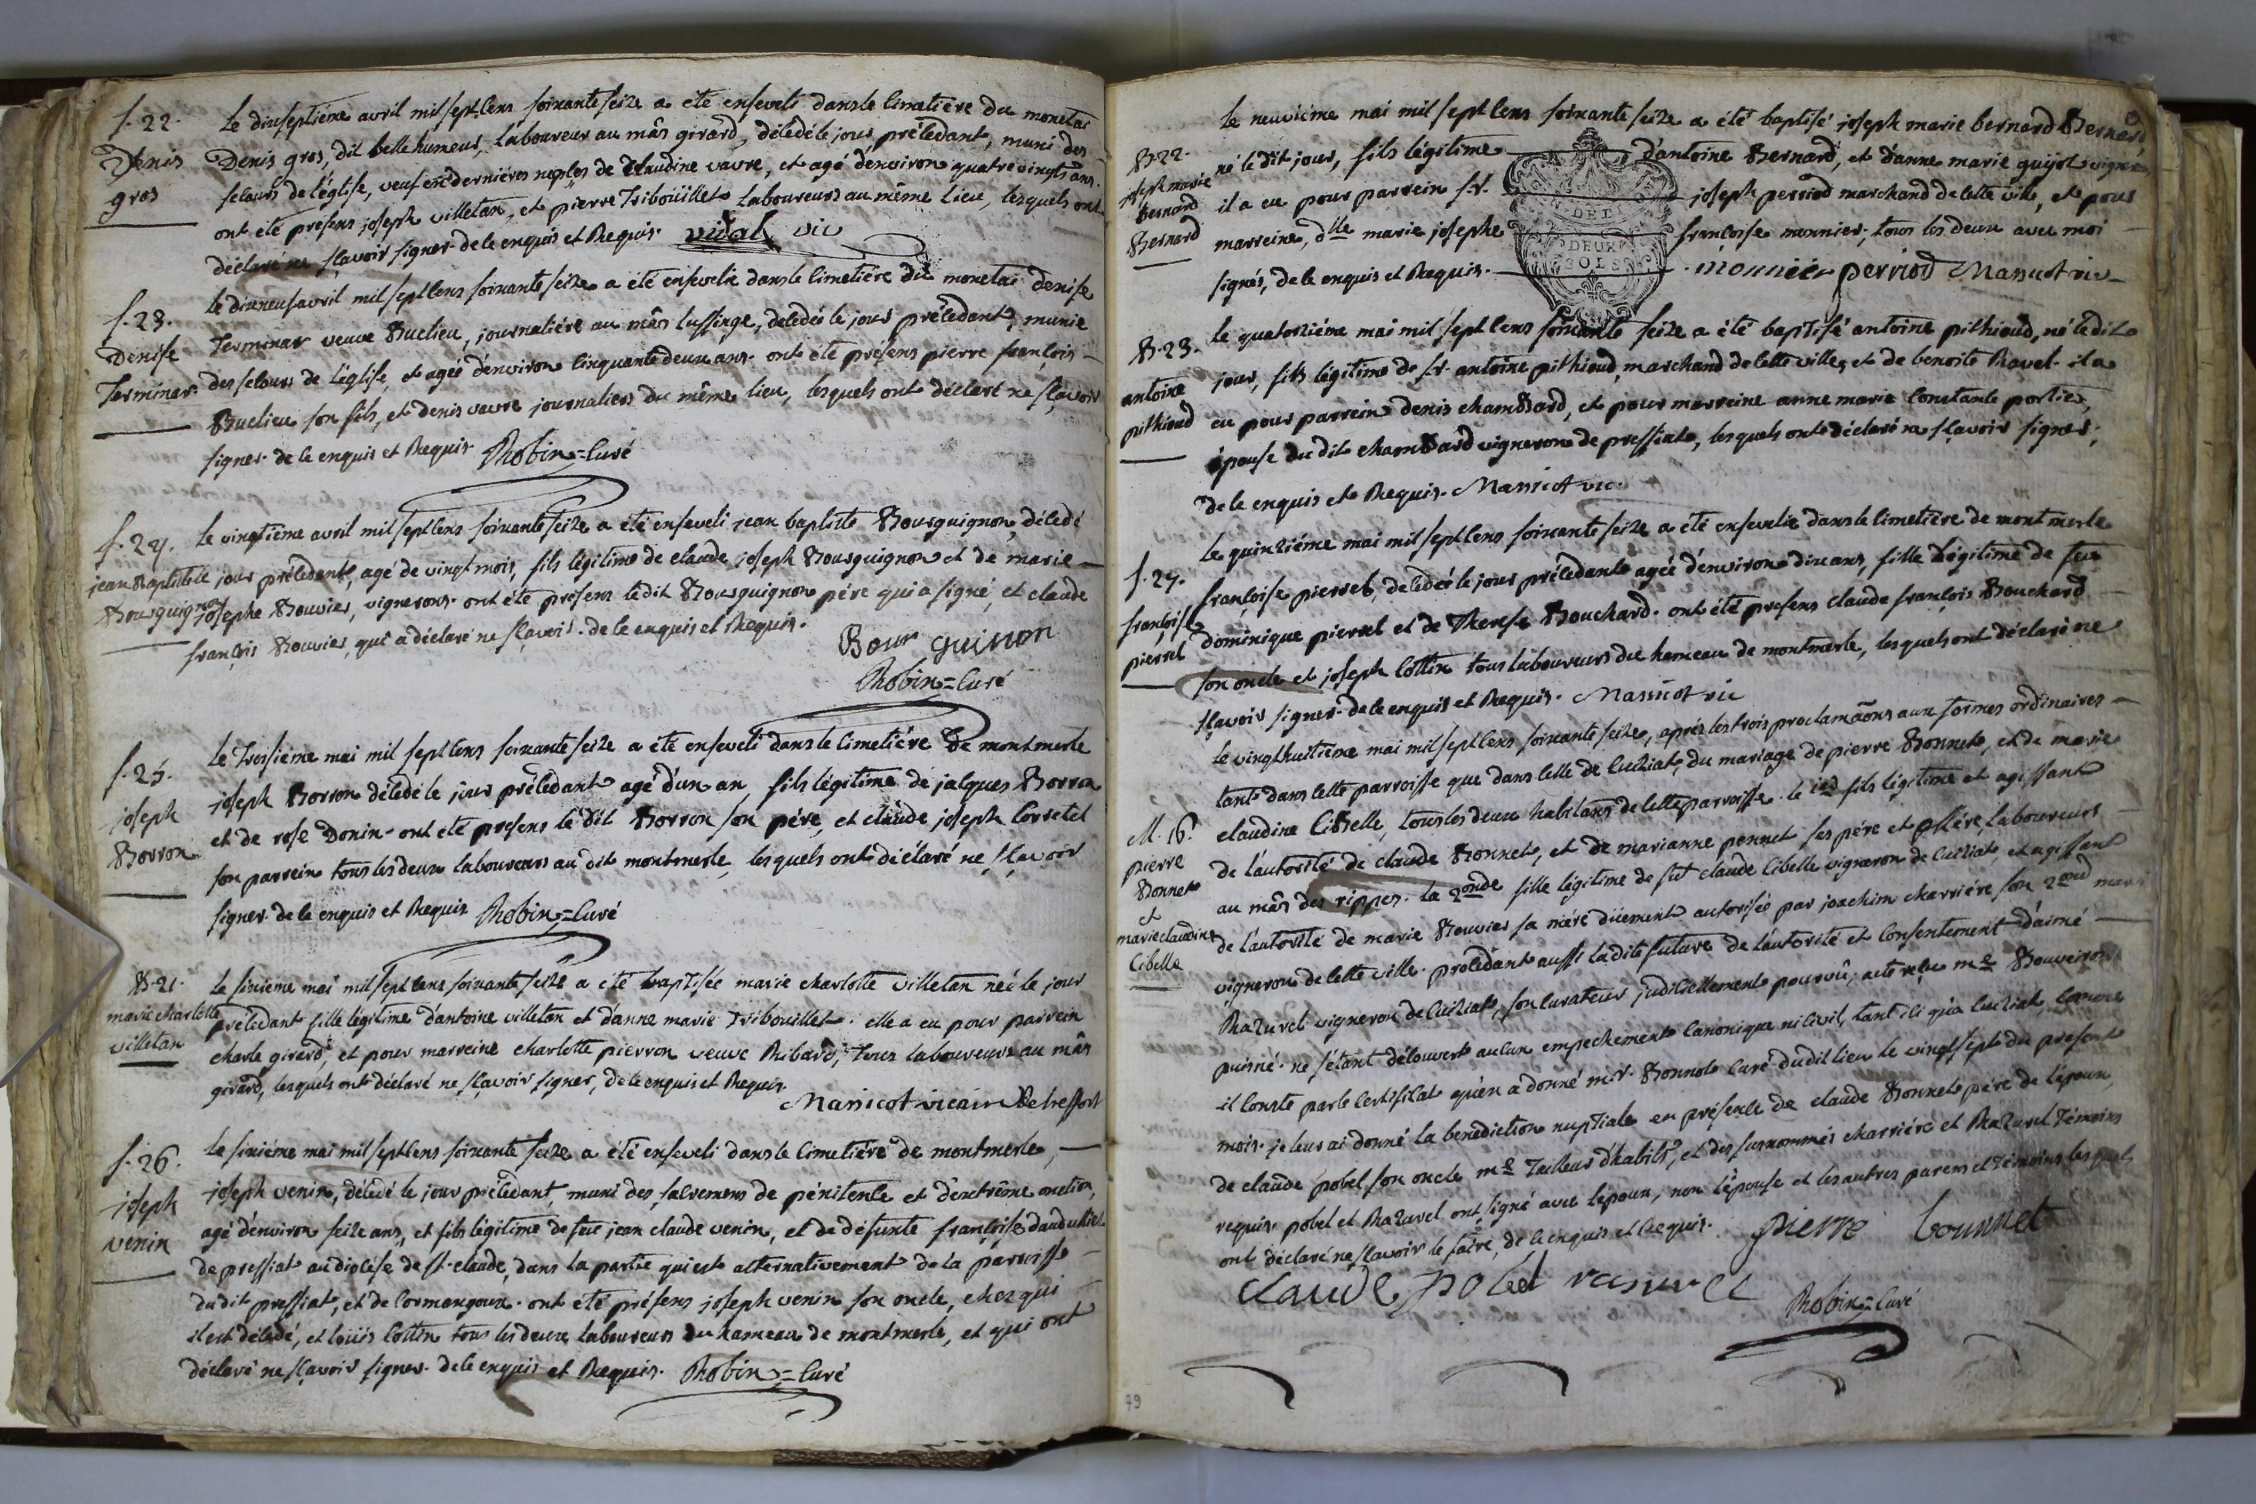 f. 22.
Denis
gros
le dixseptiéme avril mil sept cens soixante seize a été enseveli dans le cimetière du monetai
Denis gros, dit belle humeur, laboureur au mâs girard, décédé le jour précedant, muni des
secours de l'église, veuf en derniéres noples de Claudine vavre, et agé d'environ quatre vingts ans.
ont été présens joseph villetan, et pierre Tribouïllet laboureurs au même lieu, lesquels ont
déclaré ne sçavoir signer de ce enquis et Requis. vidal vic
f. 23.
Denise
Terminar
le dixneuf avril mil sept cens soixante seize a été ensevelie dans le cimetiére du monetai denise
Terminar veuve Buclieu, journaliére au mâs lussinge, décédée le jour précédant, munie
des secours de l'église, et agée d'environ cinquante deux ans. ont été présens pierre françois
Buclieu son fils, et denis vavre journaliers du même lieu, lesquels ont déclaré ne sçavoir
signer de ce enquis et Requis. Robin = Curé
f. 24.
jean Baptiste
Bourguignon
le vingtième avril mil sept cens soixante seize a été enseveli jean baptiste Bourguignon, décédé
le jour précedent, agé de vingt mois, fils légitime de claude joseph Bourguignon et de marie
josephe Bouvier, vignerons. ont été présens ledit Bourguignon pére qui a signé, et claude
françois Bouvier, qui a déclaré ne sçavoir. de ce enquis et Requis.
Bour guinon
Robin = Curé
f. 25.
joseph
Borron
le Troisiéme mai mil sept cens soixante seize a été enseveli dans le cimetiére de montmerle
joseph Borron décédé le jour précédant agé d'un an, fils légitime de jacques Borron
et de rose Donin. ont été présens le dit Borron son pére, et claude joseph Corretel
son parrein tous les deux laboureurs au dit montmerle, lesquels ont déclaré ne sçavoir
signer de ce enquis et Requis Robin = Curé
B. 21.
marie charlotte
villetan
le sixiéme mai mil sept cens soixante seize a été baptisée marie charlotte villetan née le jour
précedant fille légitime d'antoine villetan et d'anne marie Tribouillet. elle a eu pour parrein
charle girard, et pour marreine charlotte pierron veuve Ribard, Tous laboureurs au mâs
girard, lesquels ont déclaré ne sçavoir signer, de ce enquis et Requis.
Massicot vicair de treffort
f. 26.
joseph
venin
le sixiéme mai mil sept cens soixante seize a été enseveli dans le cimetiére de montmerle,
joseph venin, décédé le jour précedant, muni des sacremens de pénitence et d'extrême onction,
agé d'environ seize ans, et fils légitime de feu jean claude venin, et de défunte françoise
de pressiat au diocèse de st. claude, dans la partie qui est alternativement de la paroisse
dudit pressiat, et de Cormangoux. ont été présens joseph venin son oncle, chez qui
il est décédé, et loüis Cottin tous les deux laboureurs du hameau de montmerle, et qui ont
déclaré ne sçavoir signer. de ce enquis et Requis. Robin = Curé
B. 22.
joseph marie
Bernard
Bernard
le neuviéme mai mil sept cens soixante seize a été baptisé joseph marie bernard Bernard
né le dit jour, fils légitime d'antoine Bernard, et d'anne marie guijot vigner
il a eu pour parrein sr. joseph perriod marchand de cette ville, et pour
marreine, dlle marie josephe françoise monnier, tous les deux avec moi
signés, de ce enquis et Requis. monnier perriod Massicot vic
DEUX
SOLS
B. 23.
antoine
pithioud
le quatorziéme mai mil sept cens soixante seize a été baptisé antoine pithioud, né le dit
jour, fils légitime de sr. antoine pithioud, marchand de cette ville, et de benoite Ravel. il a
eu pour parrein denis chambard, et pour marreine anne marie Constante portier,
épouse du dit chambard vigneron de pressiat, lesquels ont déclaré ne sçavoir signer,
de ce enquis et Requis. Massicot vic.
f. 27.
françoise
pierrel
le quinziéme mai mil sept cens soixante seize a été ensevelie dans le cimetière de montmerle
françoise pierrel, décédée le jour précedant agée d'environ dix ans, fille légitime de feu
dominique pierrel et de Therese Bouchard. ont été présens claude françois Bouchard
son oncle et joseph Cottin tous laboureurs du hameau de montmerle, lesquels ont déclaré ne
sçavoir signer. de ce enquis et Requis. Massicot vic
M. 16.
pierre
Bonnet
et
marie claudine
Cibelle
le vingthuitiéme mai mil sept cens soixante seize, après les trois proclamãons aux formes ordinaires
tant dans cette parroisse que dans celle de Cuiziat, du mariage de pierre Bonnet, et de marie
claudine Cibelle, tous les deux habitans de cette parroisse. le 1er fils légitime et agissant
de l'autorité de claude Bonnet, et de marianne ponnet ses pére et mére, laboureurs
au mâs des rippes. la 2onde fille légitime de fût claude Cibelle vigneron de Cuiziat, et agissant
de l'autorité de marie Bouvier sa mére düement autorisée par joachim charriére son 2ond mari
vigneron de cette ville. procédant aussi ladite future de l'autorité et consentement d'aimé
Razurel vigneron de Cuiziat, son curateur judiciellement pourvû, acte reçu me Bouveiron
puisné. ne s'étant découvert aucun empechement canonique ni civil, tant ici qu'à Cuiziat, comme
il conste par le certificat qu'en a donné mr. Bonnot curé dudit lieu le vingt sept du present
mois. je leur ai donné la bénédiction nuptiale en présence de claude Bonnet pére de l'époux
de claude pobel son oncle me Tailleur d'habits, et des surnommés charriére et Razurel Témoins
requis. pobel et Razurel ont signé avec l'époux, non l'épouse et les autres parens et témoins lesquels
ont déclaré ne sçavoir le faire, de ce enquis et Requis. pierre bounnet
claude pobel rasurel Robin = Curé
79